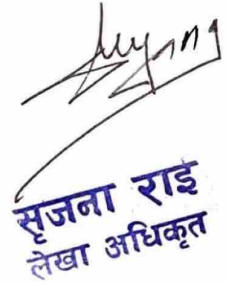 सृजना राई
लेखा अधिकृत